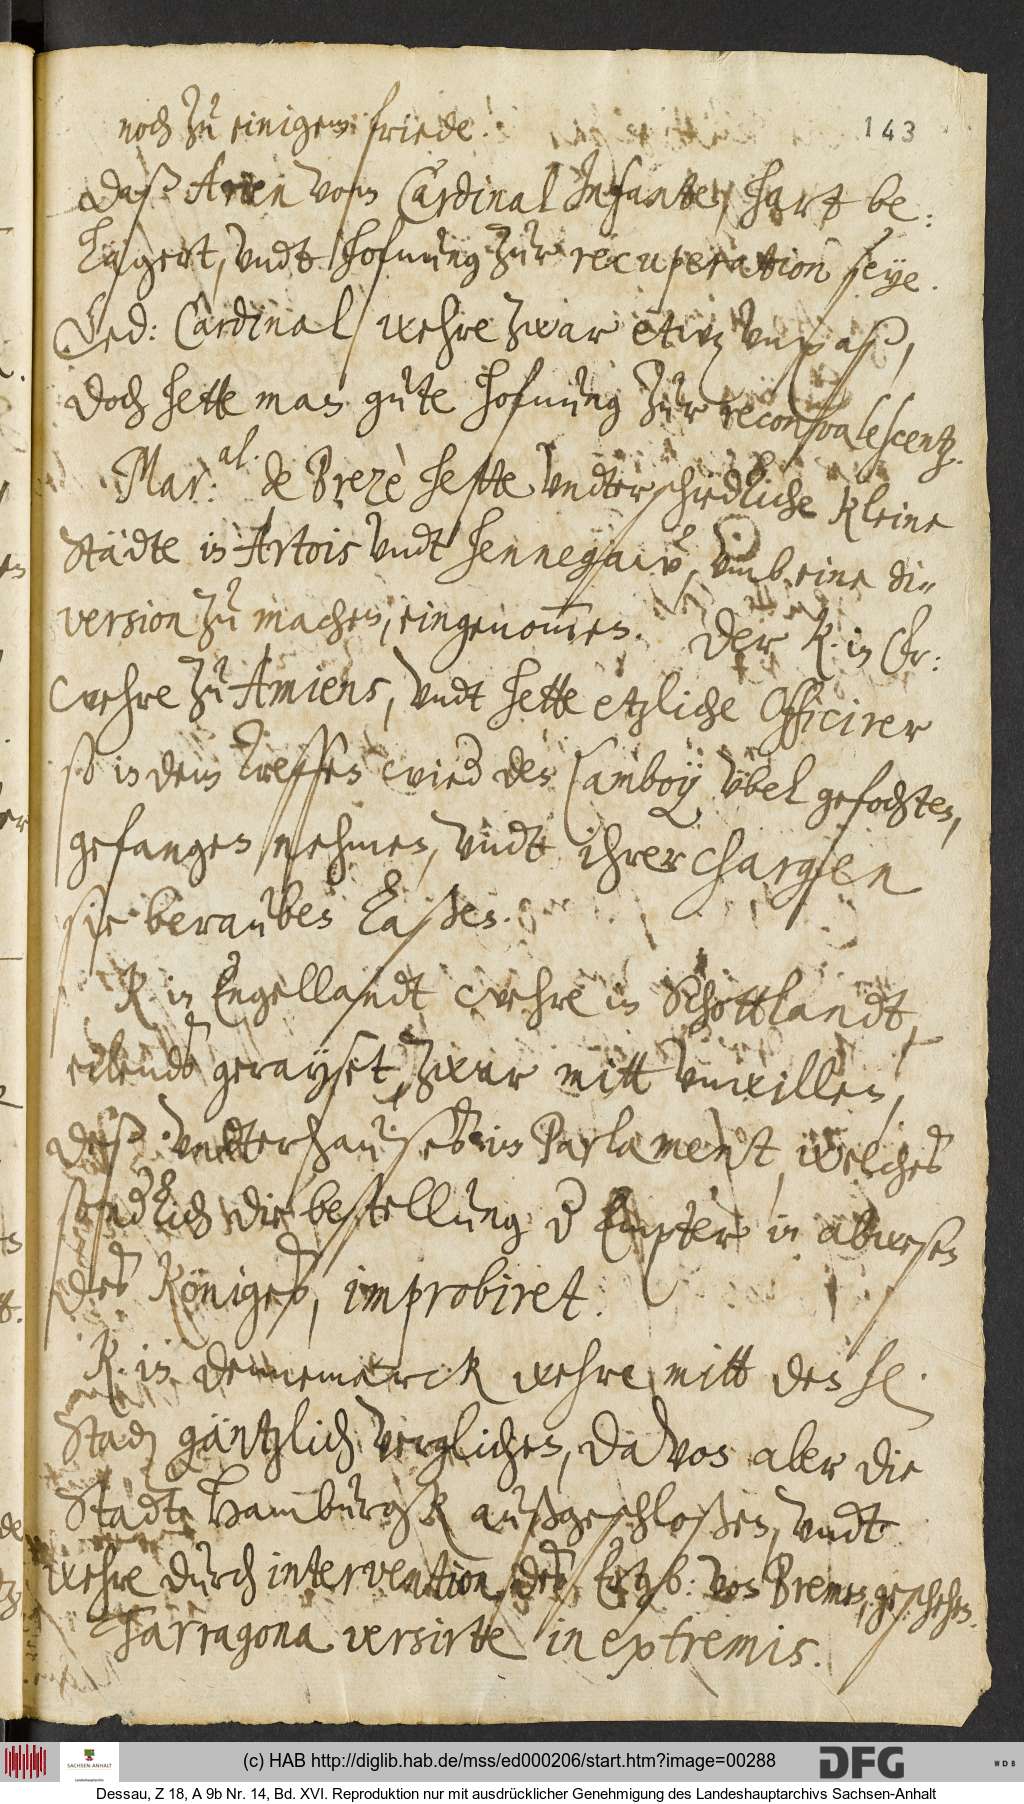 143
noch zu einigem friede.
Daß Arien vom Cardinal Infante, hart be:
lägert, undt hofnung zur recuperation seye.
Ged: Cardinal wehre zwar etwz unpaß,
doch hette man gute hofnung zur reconvalescentz.
Mar:al. de Brezè hette undterschiedliche kleine
Städte in Artois undt Hennegaw, umb eine di=
version zu machen, eingenommen. Der K. in Fr:
wehre zu Amiens, undt hette etzliche Officirer
so in dem Treffen wied den Lamboy übel gefochten,
gefangen nehmen, undt ihrer chargien
sie berauben laßen.
K. in Engellandt wehre in Schottlandt,
eilends gerayset, zwar mitt unwillen,
deß undterhauses im Parlament, welches
sonderlich die bestellung d Empter in abwesen
des Königes, improbiret.
K. in dennemarck wehre mitt den H.
Stadn gäntzlich verglichen, davon aber die
Stadt Hamburgk außgeschloßen, undt
wehre durch intervention, des Ertzb: von Bremen, geschehen.
Tarragona versirte in extremis.
(c) HAB http://diglib.hab.de/mss/ed000206/start.htm?image=00288
SACHSEN-ANHALT
DFG
WDB
Dessau, Z 18, A 9b Nr. 14, Bd. XVI. Reproduktion nur mit ausdrücklicher Genehmigung des Landeshauptarchivs Sachsen-Anhalt